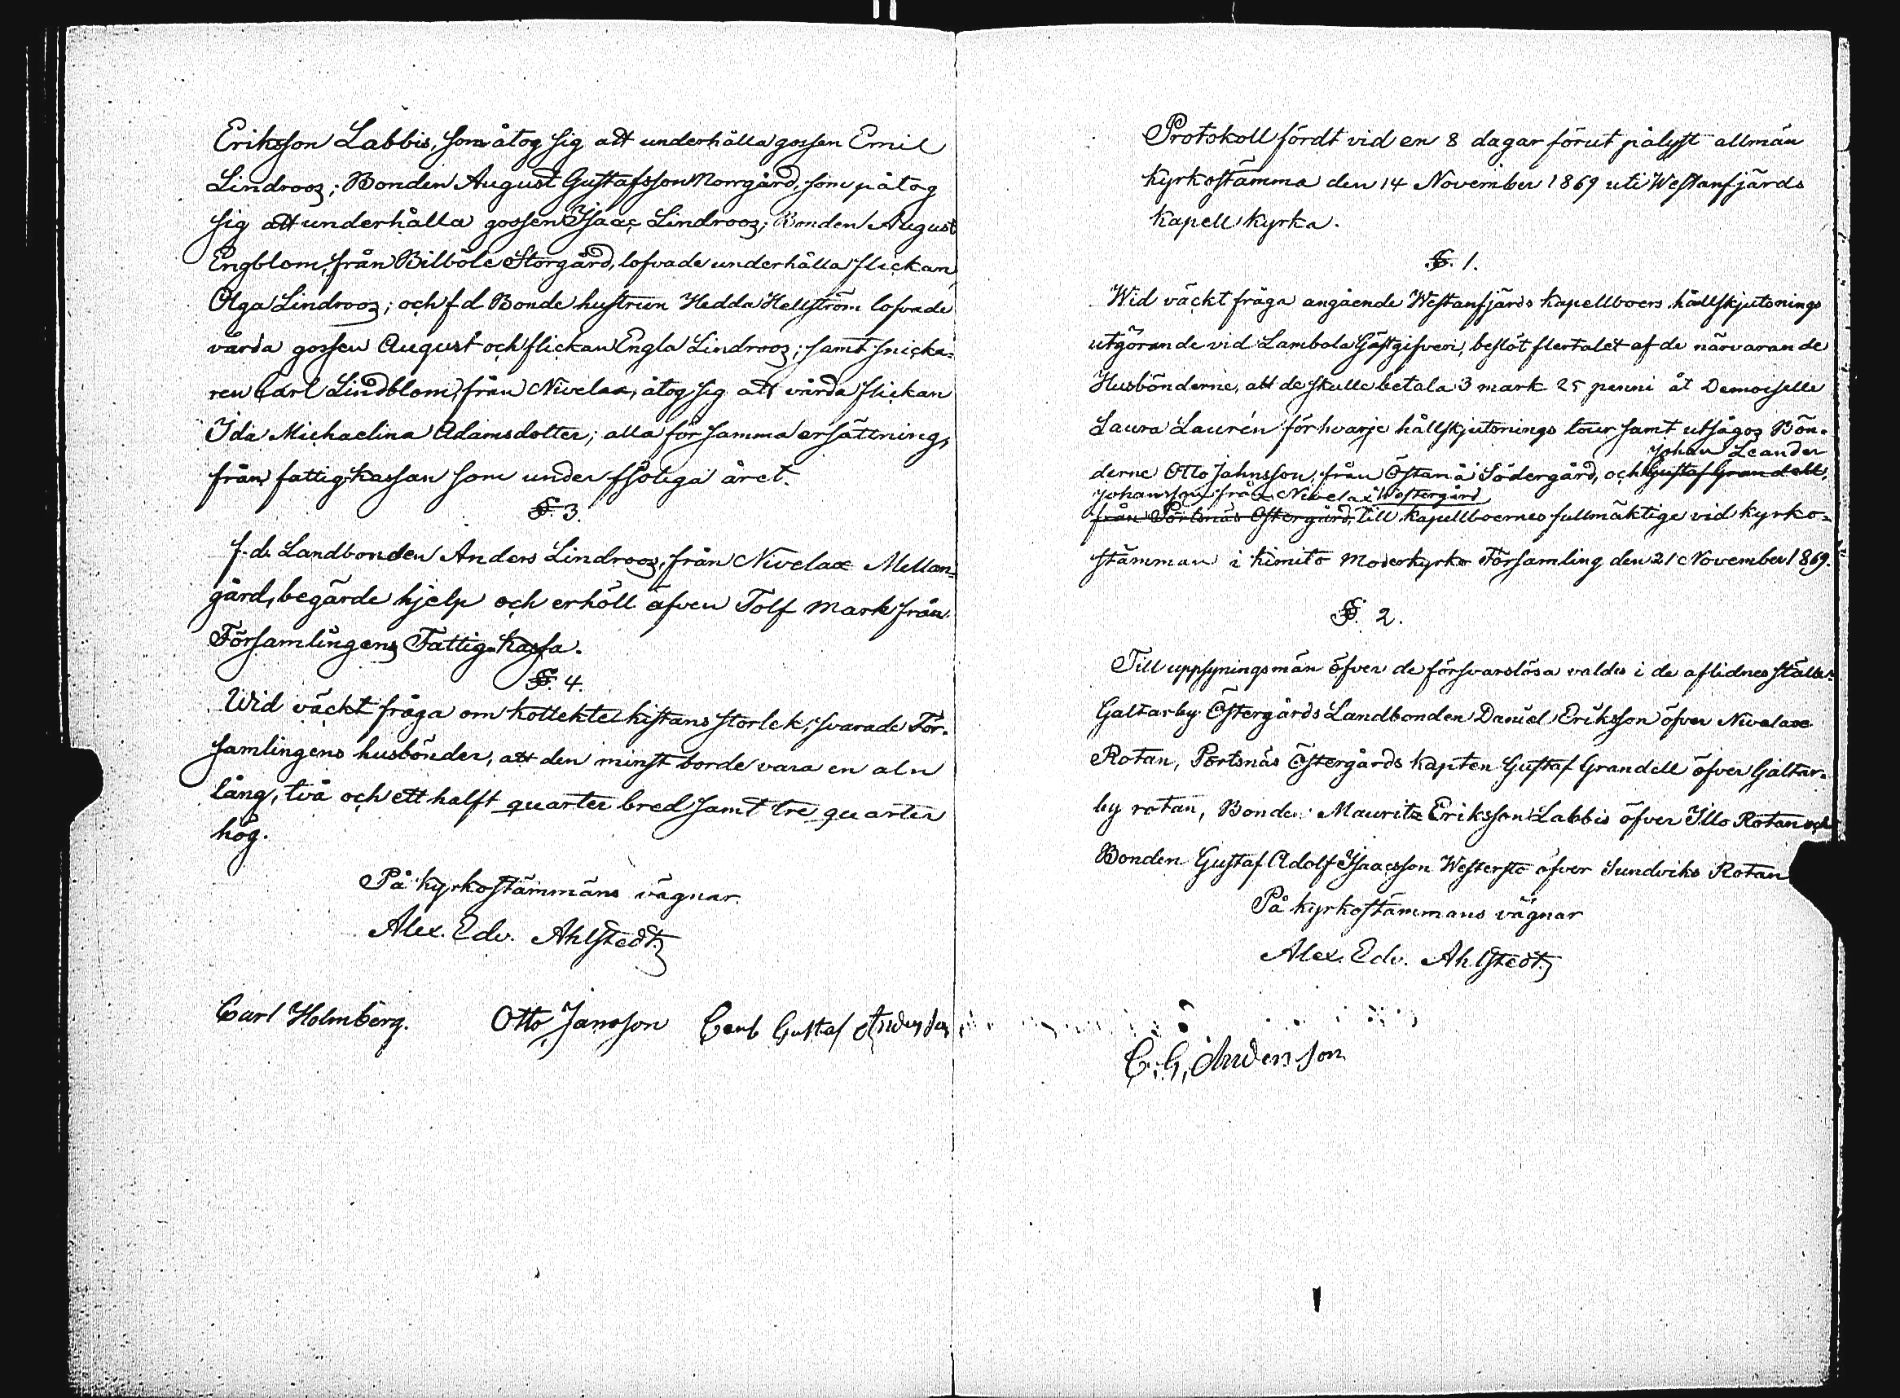 Eriksson Labbis, som åtog sig att underhålla gossen Emil
Lindroos; Bonden August Gustafsson Norrgård, som påtog
sig att underhålla gossen Isaac Lindroos; Bonden August
Engblom, från Bilböle Storgård, lofvade underhålla flickan
Olga Lindroos; och f d Bonde hustrun Hedda Hellström lofvade
vårda gossen August och flickan Engla Lindroos; samt snicka-
ren Carl Lindblom, från Nivelax, åtog sig att vårda flickan
Ida Michaelina Adamsdotter; alla för samma ersättning,
från fattig-kassan som under ffsotiga året.
§. 3.
f.d. Landbonden Anders Lindroos, från Nivelax Mellan-
gård, begärde hjelp och erhöll äfven Tolf mark från
Församlingens Fattig-Kassa.
§. 4.
Wid väckt fråga om kollekte-kistans storlek, svarade För-
samlingens husbönder, att den minst borde vara en aln
lång, två och ett halft quarter bred samt tre quarter
hög.
På Kyrkostämmans vägnar
Alex. Edv. Ahlstedt
Carl Holmberg. Otto Jansson Carl Gustaf Andersson
Protokoll fördt vid en 8 dagar förut pålyst allmän
Kyrkostämma den 14 November 1869 uti Westanfjärds
Kapell kyrka.
§. 1.
Wid väckt fråga angående Westanfjärds kapellboers hållskjutsnings
utgörande vid Lambola Gästgifveri, beslöt flertalet af de närvarande
Husbönderne, att de skulle betala 3 mark 25 penni åt Demoiselle
Laura Laurén för hvarje hållskjutsnings tour samt utsågos Bön-
Johan Leander
derne Otto Jahnsson, från Östanå Södergård, och Gustaf Grandell,
Johansson från Nivelax Westergård
från Pörtsnäs Östergård, till kapellboernes fullmäktige vid kyrko-
stämman i Kimito Moderkyrko Församling den 21 November 1869.
§. 2.
Till uppsyningsmän öfver de försvarslösa valdes i de aflidnes ställe:
Galtarby Östergårds Landbonden Daniel Eriksson öfver Nivelax
Rotan, Pörtsnäs Östergårds kapten Gustaf Grandell öfver Galtar-
by rotan, Bonden Mauritz Eriksson Labbis öfver Illo Rotan och
Bonden Gustaf Adolf Isacsson Westersto öfver Sundviks Rotan
På kyrkostämmans vägnar
Alex. Edv. Ahlstedt
C. G. Andersson